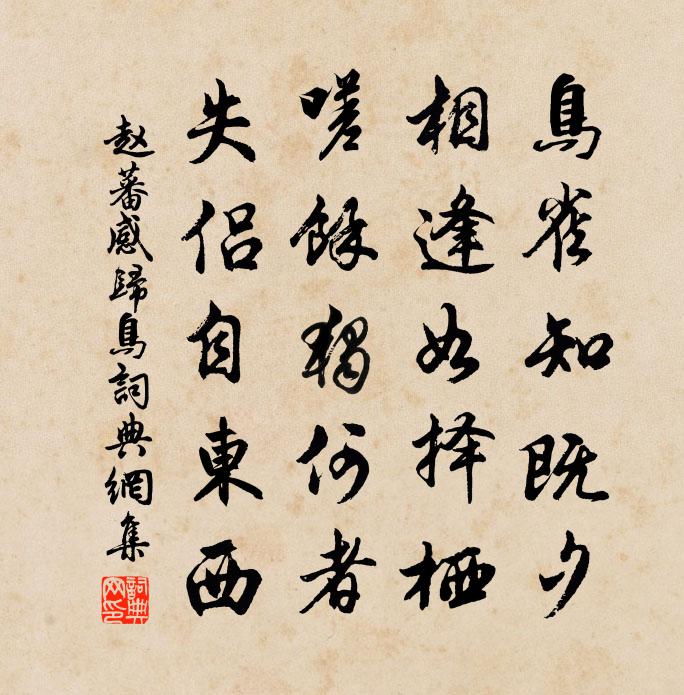 鳥雀知既夕
相逢如择栖
嗟餘獨何者
失侣自東西
赵蕃感歸鳥詞典網集
詞典
網印